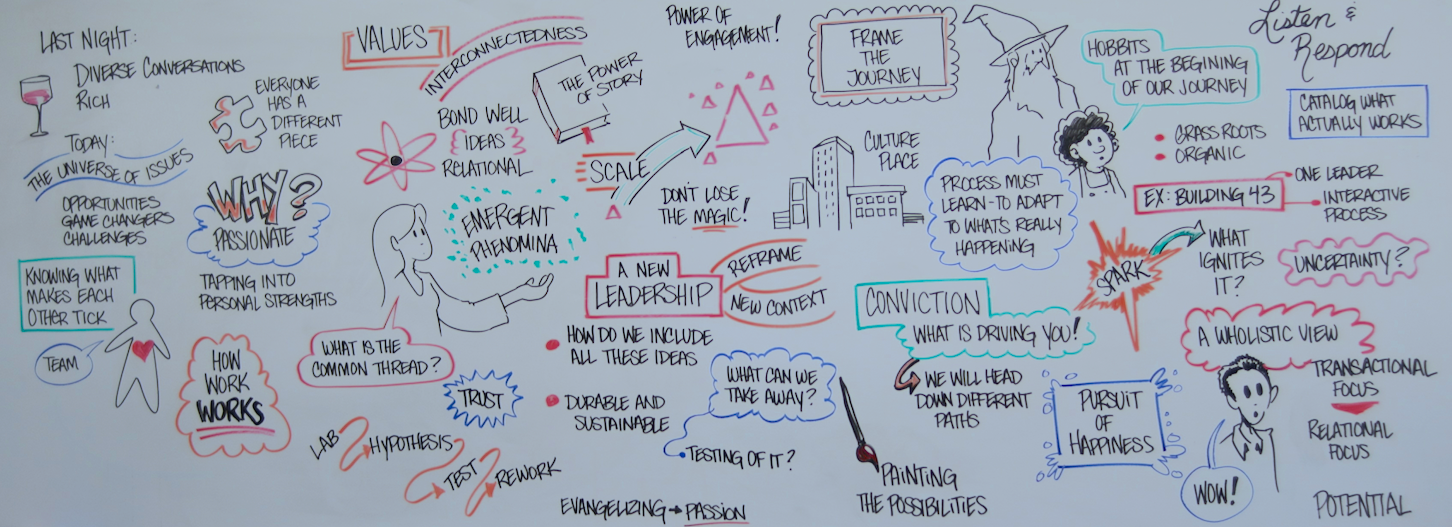 LAST NIGHT:
DIVERSE CONVERSATIONS
RICH
EVERYONE
HAS A
DIFFERENT
PIECE
TODAY:
THE UNIVERSE OF ISSUES
OPPORTUNITIES
GAME CHANGERS
CHALLENGES
WHY?
PASSIONATE
TAPPING INTO
PERSONAL STRENGTHS
KNOWING WHAT
MAKES EACH
OTHER TICK
TEAM
HOW
WORK
WORKS
VALUES
INTERCONNECTEDNESS
BOND WELL
IDEAS
RELATIONAL
THE POWER
OF STORY
EMERGENT
PHENOMINA
WHAT IS THE
COMMON THREAD?
TRUST
LAB
HYPOTHESIS
TEST
REWORK
POWER OF
ENGAGEMENT!
SCALE
DON'T LOSE
THE MAGIC!
A NEW
LEADERSHIP
REFRAME
NEW CONTEXT
HOW DO WE INCLUDE
ALL THESE IDEAS
DURABLE AND
SUSTAINABLE
WHAT CAN WE
TAKE AWAY?
TESTING OF IT?
EVANGELIZING → PASSION
FRAME
THE
JOURNEY
CULTURE
PLACE
PROCESS MUST
LEARN-TO ADAPT
TO WHAT'S REALLY
HAPPENING
HOBBITS
AT THE BEGINING
OF OUR JOURNEY
CONVICTION
WHAT IS DRIVING YOU!
WE WILL HEAD
DOWN DIFFERENT
PATHS
PAINTING
THE POSSIBILITIES
SPARK
WHAT
IGNITES
IT?
PURSUIT
OF
HAPPINESS
Listen &
Respond
CATALOG WHAT
ACTUALLY WORKS
GRASS ROOTS
ORGANIC
EX: BUILDING 43
ONE LEADER
INTERACTIVE
PROCESS
UNCERTAINTY?
A WHOLISTIC VIEW
TRANSACTIONAL
FOCUS
RELATIONAL
FOCUS
WOW!
POTENTIAL